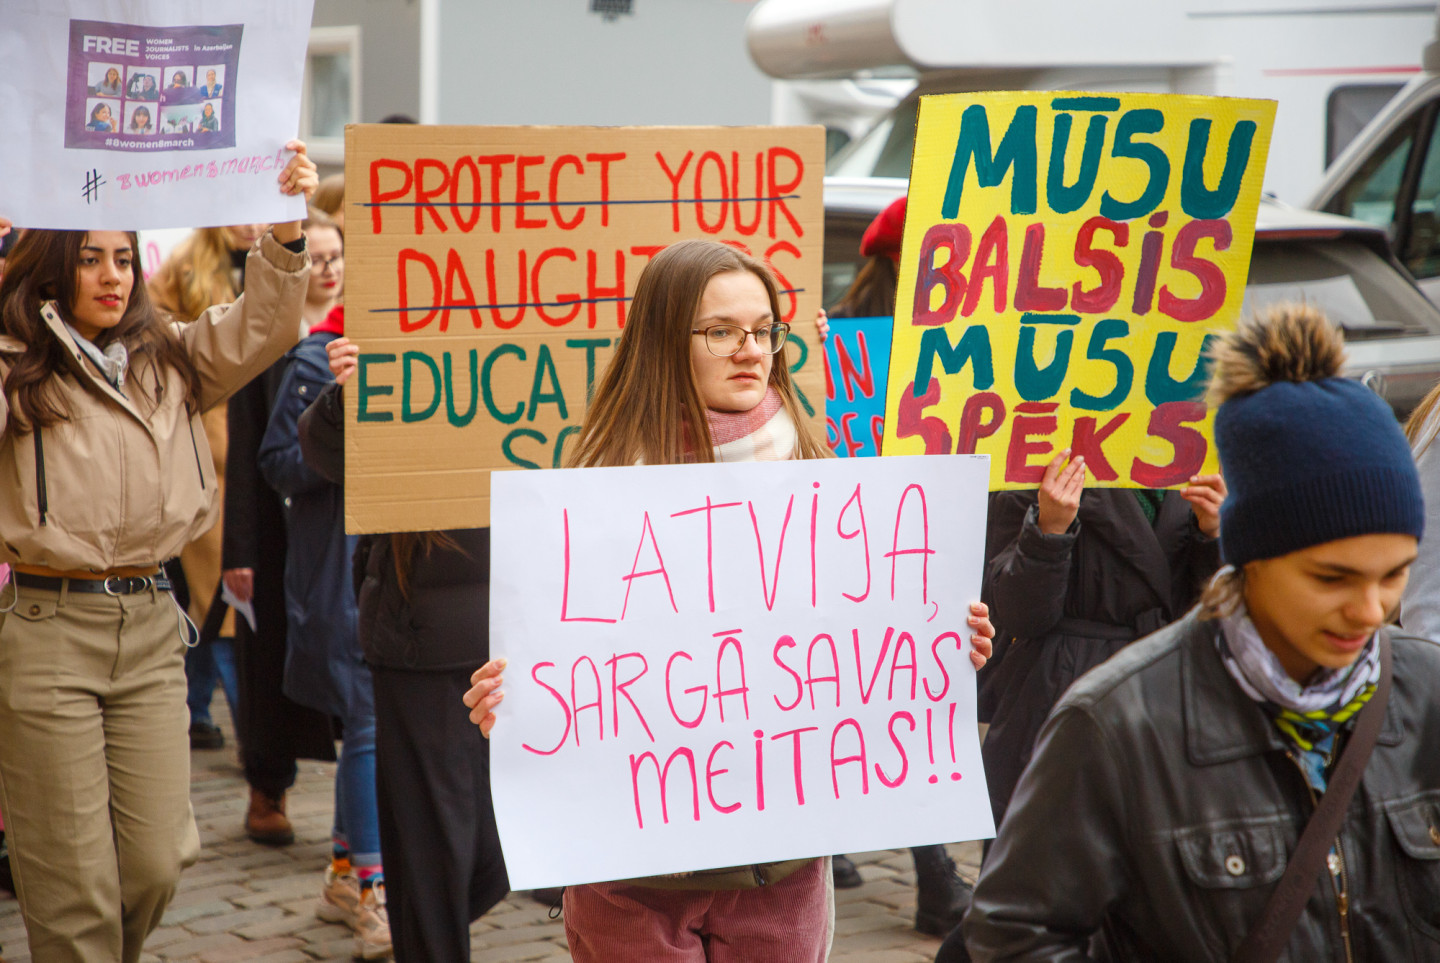 FREE
WOMEN
JOURNALISTS
VOICES
in Azerbaijan
#8women8march
# 8women8march
PROTECT YOUR
EDUCATE
MŪSU
BALSIS
MŪSU
SPĒKS
IN
LATVIJA,
SARGĀ SAVAS
MEITAS!!